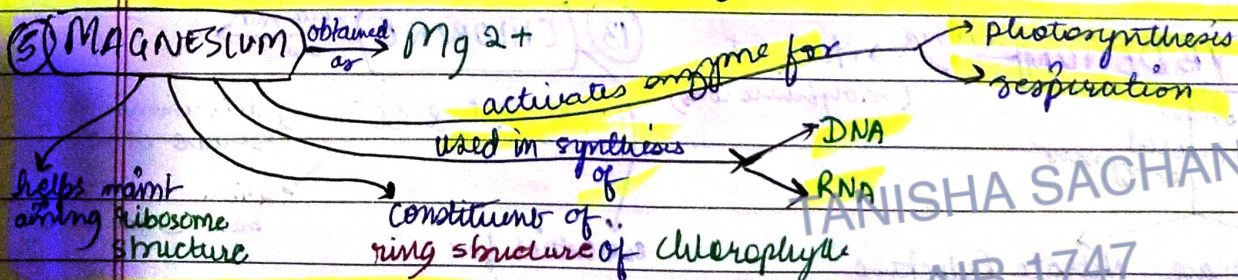 ⑤ MAGNESIUM obtained as Mg 2+
activates enzyme for
photosynthesis
respiration
used in synthesis
of
DNA
RNA
helps maint
aining ribosome
structure
constituent of..
ring structure of Chlorophyll
TANISHA SACHAN
AIR 1747